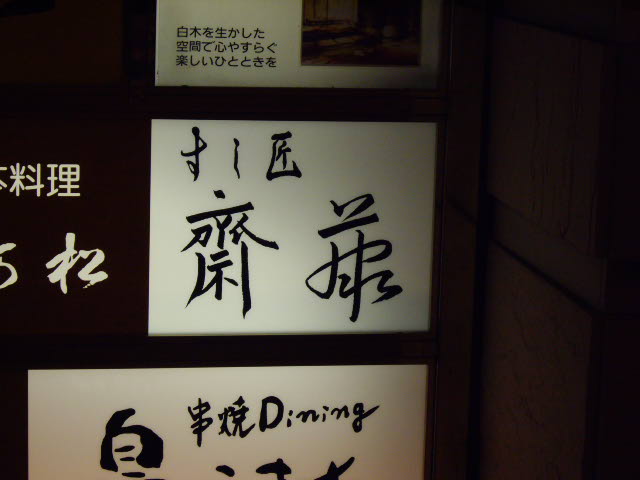 白木を生かした
空間で心やすらぐ
楽しいひとときを
すし匠
齋藤
料理
松
串焼Dining